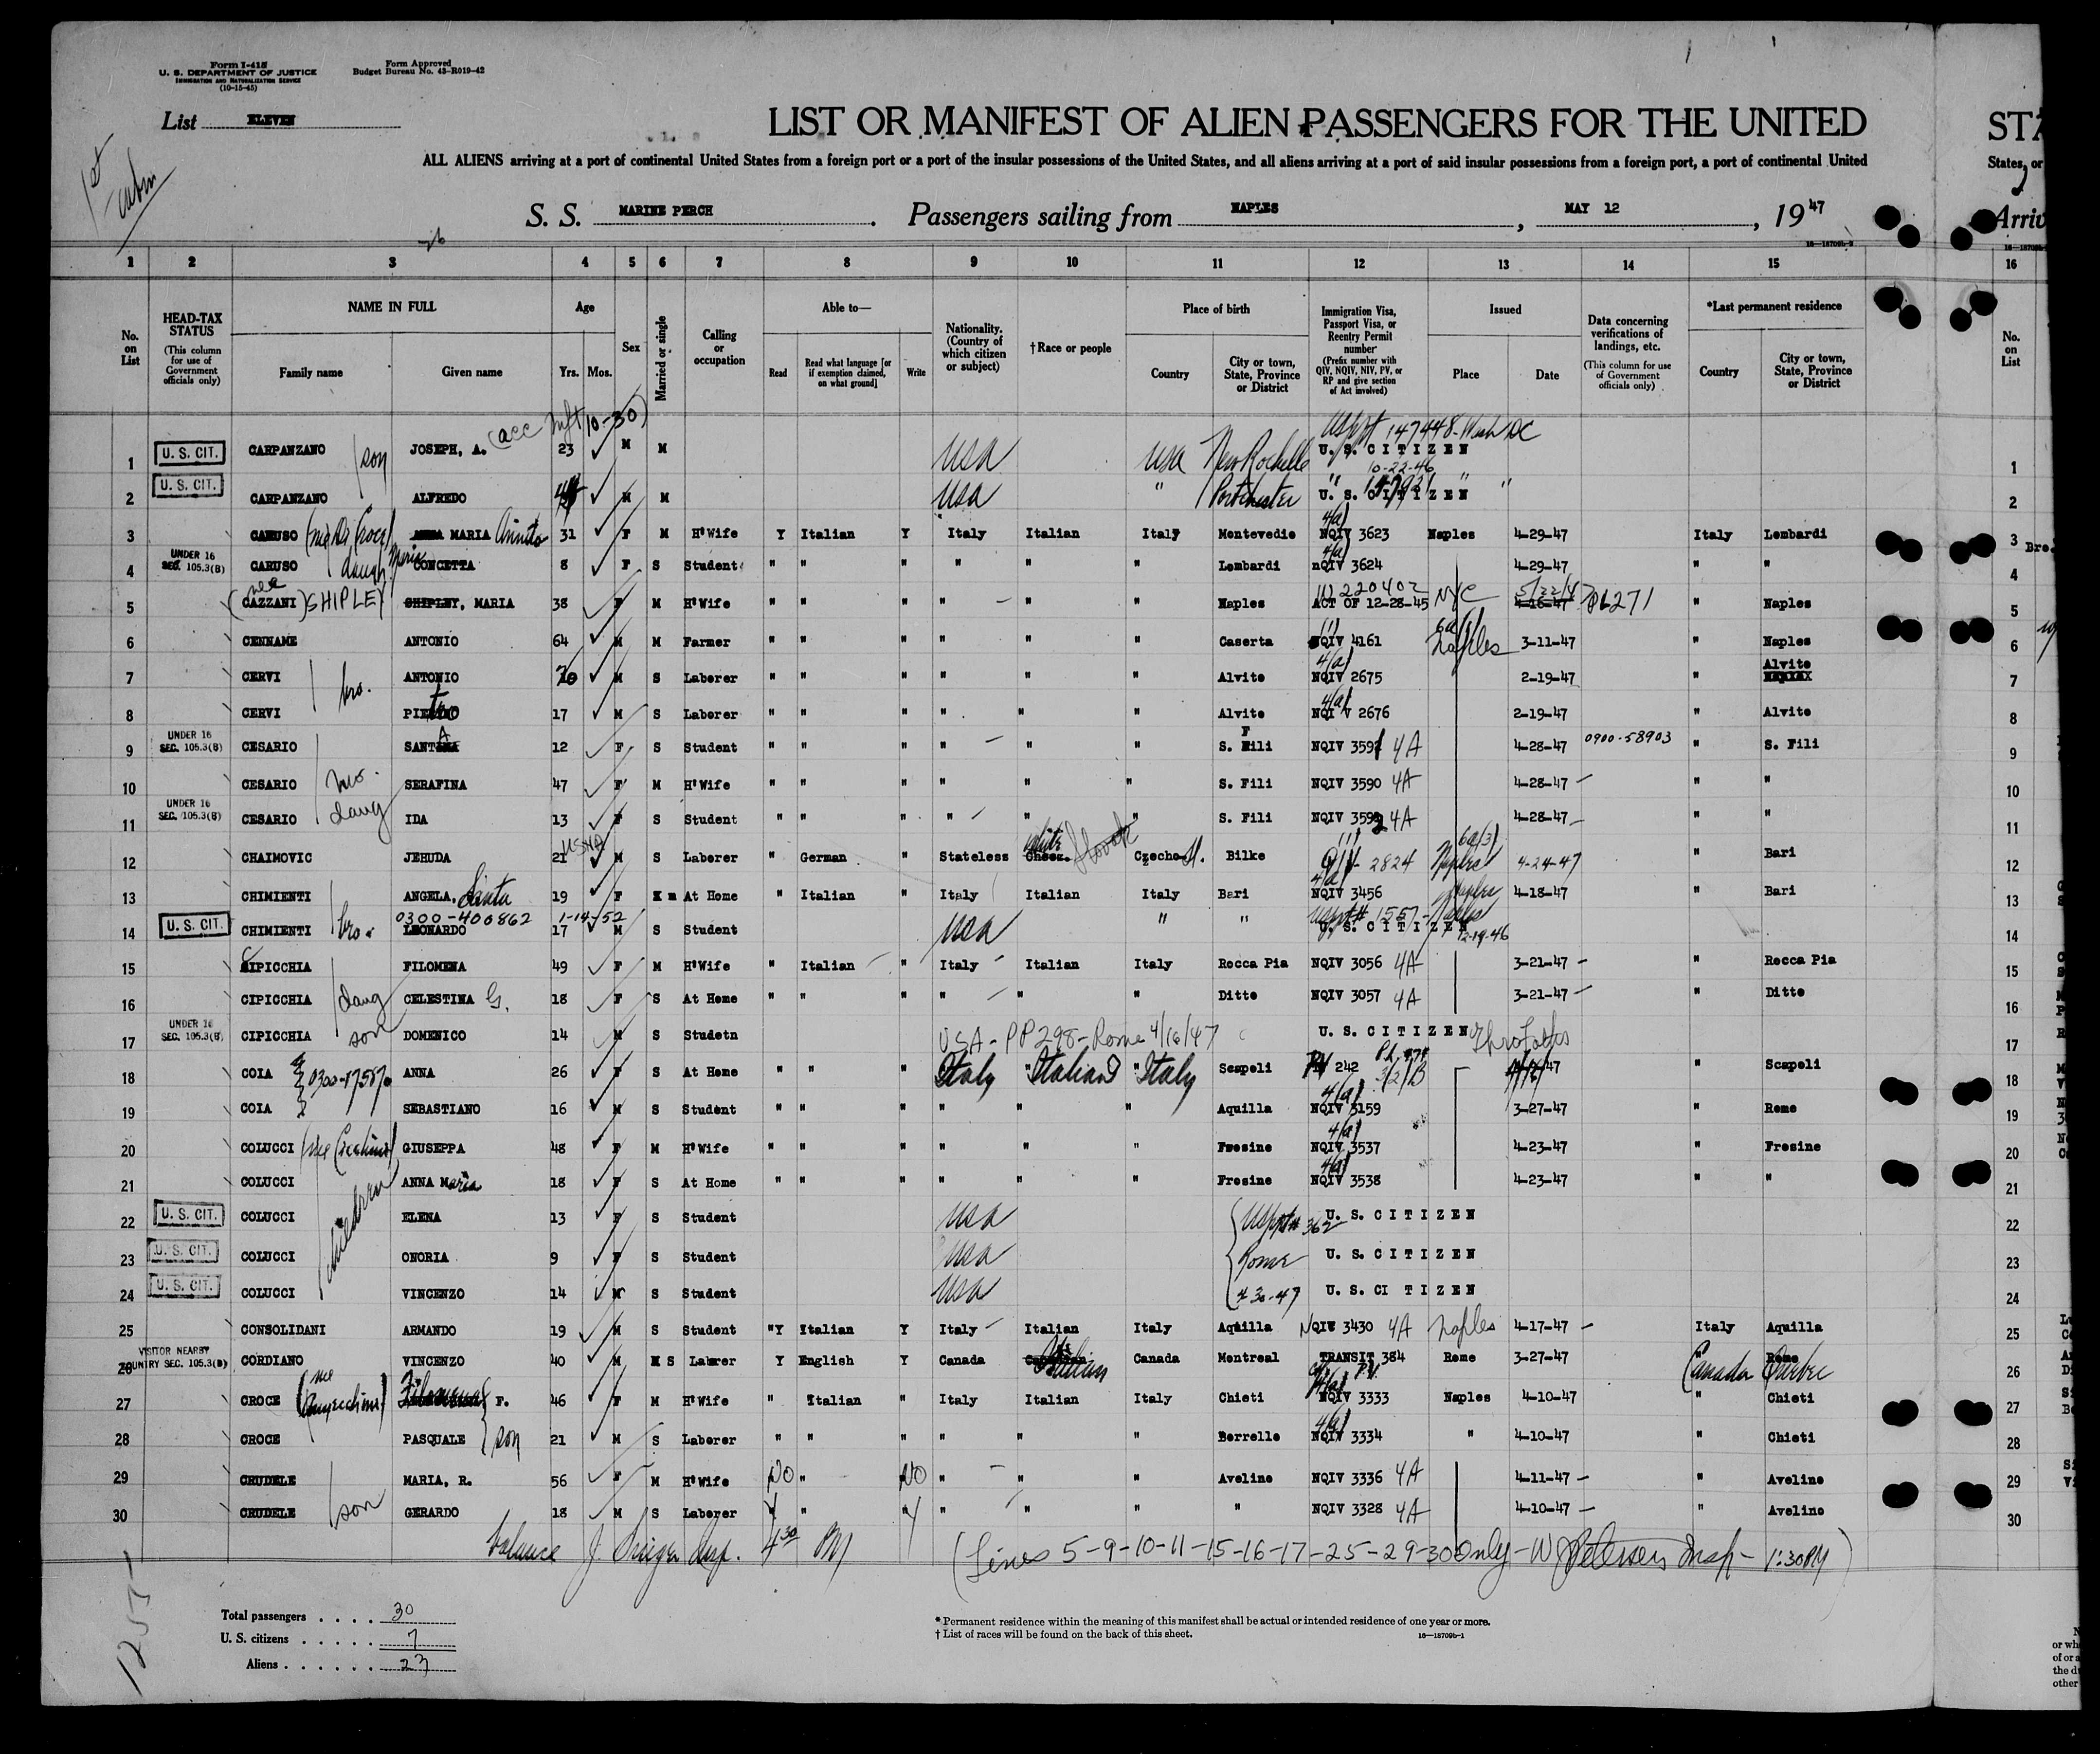 Form I-415
U. S. DEPARTMENT OF JUSTICE
IMMIGRATION AND NATURALIZATION SERVICE
(10-15-45)
Form Approved
Budget Bureau No. 43-R019-42
List ELEVEN
1st Cabin
LIST OR MANIFEST OF ALIEN PASSENGERS FOR THE UNITED
STA
ALL ALIENS arriving at a port of continental United States from a foreign port or a port of the insular possessions of the United States, and all aliens arriving at a port of said insular possessions from a foreign port, a port of continental United
States, or
S. S. MARINE PERCH. Passengers sailing from NAPLES, MAY 12, 1947
Arriv
16—18709b-2
1 2 3 4 5 6 7 8 9 10 11 12 13 14 15 16
No. on List
HEAD-TAX STATUS (This column for use of Government officials only)
NAME IN FULL Family name Given name
Age Yrs. Mos.
Sex
Married or single
Calling or occupation
Able to— Read Read what language [or if exemption claimed, on what ground] Write
Nationality. (Country of which citizen or subject)
†Race or people
Place of birth Country City or town, State, Province or District
Immigration Visa, Passport Visa, or Reentry Permit number (Prefix number with QIV, NQIV, NIV, PV, or RP and give section of Act involved)
Issued Place Date
Data concerning verifications of landings, etc. (This column for use of Government officials only)
*Last permanent residence Country City or town, State, Province or District
No. on List
1 U. S. CIT. CARPANZANO son JOSEPH, A. 23 M M USA USA New Rochelle USppt 147448-Wash DC U. S. CITIZEN 10-22-46 1
2 U. S. CIT. CARPANZANO ALFREDO M M USA " Portchester U. S. CITIZEN " " 2
3 CARUSO MARIA 31 F M H'Wife Y Italian Y Italy Italian Italy Montevedie 4(a) NQIV 3623 Naples 4-29-47 Italy Lombardi 3
4 UNDER 16 SEC. 105.3(B) CARUSO daugh Maria CONCETTA 8 F S Student " " " " " " Lombardi 4(a) nQIV 3624 4-29-47 " " 4
5 (nee CAZZANI) SHIPLEY SHIPLEY, MARIA 38 F M H'Wife " " " " " " Naples 220402 ACT OF 12-28-45 NYC 4-16-47 " Naples 5
6 CENNAME ANTONIO 64 M M Farmer " " " " " " Caserta NQIV 4161 Naples 3-11-47 " Naples 6
7 CERVI bro. ANTONIO M S Laborer " " " " " " Alvito 4(a) NQIV 2675 2-19-47 " Alvito 7
8 CERVI 17 M S Laborer " " " " " " Alvito 4(a) NQI V 2676 2-19-47 " Alvito 8
9 UNDER 16 SEC. 105.3(B) CESARIO SANTA 12 F S Student " " " " " " S. Fili NQIV 3591 4A 4-28-47 0900-58903 " S. Fili 9
10 CESARIO mo. SERAFINA 47 F M H'Wife " " " " " " S. Fili NQIV 3590 4A 4-28-47 " " 10
11 UNDER 16 SEC. 105.3(B) CESARIO daug IDA 13 F S Student " " " " " " S. Fili NQIV 3592 4A 4-28-47 " " 11
12 CHAIMOVIC JEHUDA USNA 21 M S Laborer " German " Stateless White Slovak Czecho Sl. Bilke 2824 Naples 4-24-47 " Bari 12
13 CHIMIENTI ANGELA. Santa 19 F m At Home " Italian " Italy Italian Italy Bari 4(a) NQIV 3456 Naples 4-18-47 " Bari 13
14 U. S. CIT. CHIMIENTI bro. 0300-400862 1-14-52 LEONARDO 17 M S Student USA " " USppt# 1557-Naples U. S. CITIZEN 12-19-46 14
15 CIPICCHIA FILOMENA 49 F M H'Wife " Italian " Italy Italian Italy Rocca Pia NQIV 3056 4A 3-21-47 " Rocca Pia 15
16 CIPICCHIA daug CELESTINA G. 18 F S At Home " " " " " " Ditto NQIV 3057 4A 3-21-47 " Ditto 16
17 UNDER 16 SEC. 105.3(B) CIPICCHIA son DOMENICO 14 M S Studetn USA - PP 298 - Rome 4/16/47 U. S. CITIZEN 17
18 COIA ANNA 26 F S At Home " " " Italy Italian Italy Scapoli 242 " Scapoli 18
19 COIA SEBASTIANO 16 M S Student " " " " " " Aquilla 4(a) NQIV 3159 3-27-47 " Rome 19
20 COLUCCI GIUSEPPA 48 F M H'Wife " " " " " " Frosine 4(a) NQIV 3537 4-23-47 " Frosine 20
21 COLUCCI children ANNA Maria 18 F S At Home " " " " " " Frosine 4(a) NQIV 3538 4-23-47 " " 21
22 U. S. CIT. COLUCCI ELENA 13 F S Student USA USppt# 362 U. S. CITIZEN 22
23 U. S. CIT. COLUCCI ONORIA 9 F S Student USA Rome U. S. CITIZEN 23
24 U. S. CIT. COLUCCI VINCENZO 14 M S Student USA 4-30-47 U. S. CI TIZEN 24
25 CONSOLIDANI ARMANDO 19 M S Student "Y Italian Y Italy Italian Italy Aquilla NQIV 3430 4A Naples 4-17-47 Italy Aquilla 25
26 VISITOR NEARBY COUNTRY SEC. 105.3(B) CORDIANO VINCENZO 40 M S Laborer Y English Y Canada Italian Canada Montreal TRANSIT 384 Rome 3-27-47 Canada Quebec 26
27 CROCE F. 46 F M H'Wife " Italian " Italy Italian Italy Chieti 4(a) NQIV 3333 Naples 4-10-47 " Chieti 27
28 CROCE PASQUALE son 21 M S Laborer " " " " " " Borrelle 4(a) NQIV 3334 " 4-10-47 " Chieti 28
29 CRUDELE MARIA, R. 56 F M H'Wife No " No " " " Aveline NQIV 3336 4A 4-11-47 " Aveline 29
30 CRUDELE son GERARDO 18 M S Laborer Y " Y " " " " NQIV 3328 4A 4-10-47 " Aveline 30
balance Insp. 4 30 PM (Lines 5-9-10-11-15-16-17-25-29-30 Only - W Petersen Insp - 1:30 PM)
Total passengers . . . . 30
U. S. citizens . . . . . 7
Aliens . . . . . . 23
* Permanent residence within the meaning of this manifest shall be actual or intended residence of one year or more.
† List of races will be found on the back of this sheet.
16—18709b-1